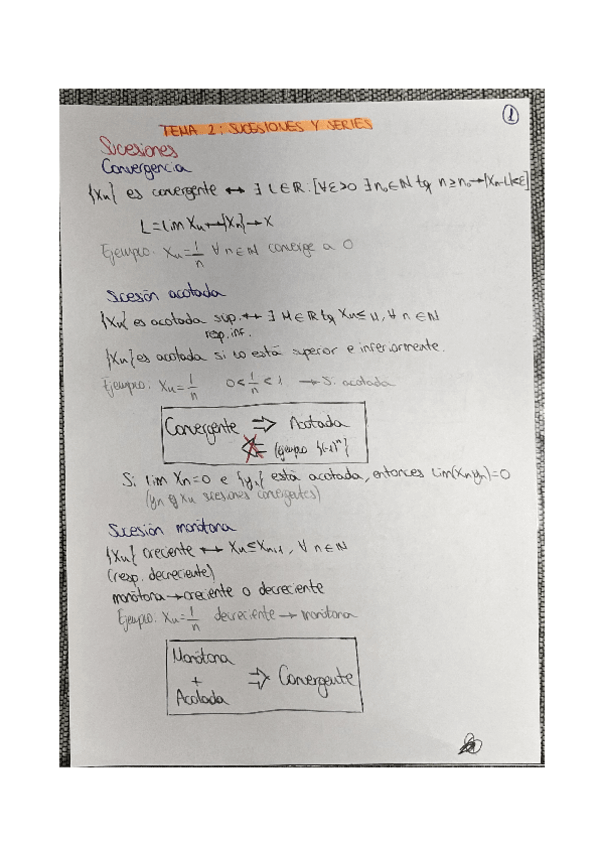 1
TEMA 2: SUCESIONES Y SERIES
Sucesiones
Convergencia
{Xn} es convergente ↔ ∃ L∈ℝ. [∀ε>0 ∃ n₀∈ℕ tq n≥n₀→|Xn-L|<ε]
L=lim Xn ↔ {Xn}→X
Ejemplo: Xn=1/n ∀ n∈ℕ converge a 0
Sucesión acotada
{Xn} es acotada sup. ↔ ∃ M∈ℝ tq Xn≤M, ∀ n∈ℕ
resp. inf.
{Xn} es acotada si lo está superior e inferiormente.
Ejemplo: Xn=1/n 0<1/n<1 → Sí acotada
Convergente ⇒ Acotada
⇐ (ejemplo {(-1)ⁿ})
Si lim Xn=0 e {yn} está acotada, entonces lim(Xnyn)=0
(yn y Xn sucesiones convergentes)
Sucesión monótona
{Xn} creciente ↔ Xn≤Xn+1, ∀ n∈ℕ
(resp. decreciente)
monótona → creciente o decreciente
Ejemplo: Xn=1/n decreciente → monótona
Monótona
+
Acotada
⇒ Convergente